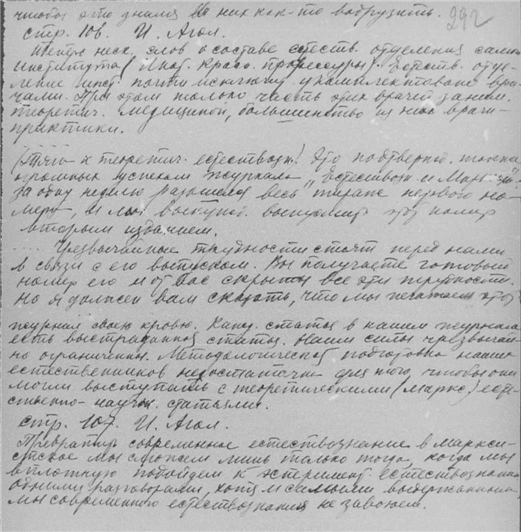 чтобы эти знания в них как-то внедрить.
292
стр. 106. И. Агол.
неск. слов о составе естеств. отделения самого
института (Инст. Красн. профессуры). Естеств. отде-
ление инст. почти исключит. укомплектовано вра-
чами. При этом только часть этих врачей заним.
теоретич. медициной, большинство из них врачи-
практики.
Тяга к теоретич. естествозн! Это подтвержд. также
громадным успехом журнала "Естествозн. и Маркс-зм".
За одну неделю разошелся весь тираж первого но-
мера, и мы выпускаем этот номер
вторым изданием.
.... Чрезвычайные трудности стоят перед нами
в связи с его выпуском. Вы получаете готовый
номер его и от Вас скрыты все эти трудности.
Но я должен вам сказать, что мы печатаем этот
журнал своею кровью. Кажд. статья в нашем журнале
есть выстраданная статья. Наши силы чрезвычай-
но ограничены. Методологическая подготовка наших
естественников недостаточна для того, чтобы они
могли выступать с теоретическими (маркс.) есте-
ственно-научн. статьями.
стр. 107. И. Агол.
Превратить современное естествознание в маркси-
стское мы сможем лишь только тогда, когда мы
вплотную подойдем к эксперимент. естествознанию
одними разговорами, хотя и самыми выдержанными
мы современного естествознания не завоюем.